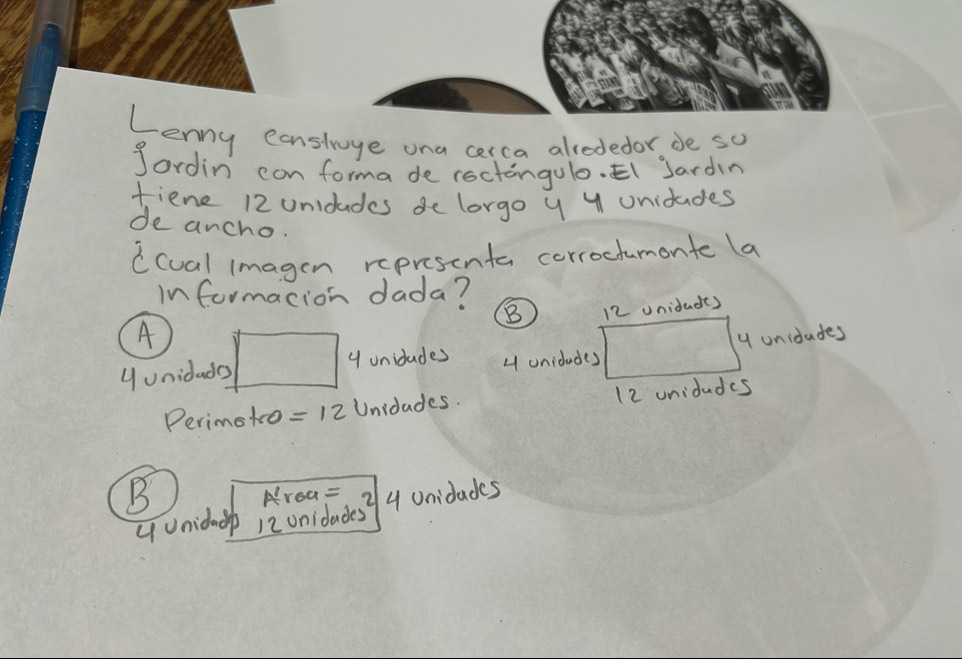 Lenny construye una cerca alrededor de su
Jardin con forma de rectángulo. El Jardin
tiene 12 unidades de largo y 4 unidades
de ancho.
¿Cual imagen representa correctamente la
información dada?
A
4 unidades 4 unidades
Perimetro = 12 Unidades.
B
12 unidades
4 unidades 4 unidades
12 unidades
B
Área =
4 unidades 12 unidades² 4 unidades
STAND
STAND